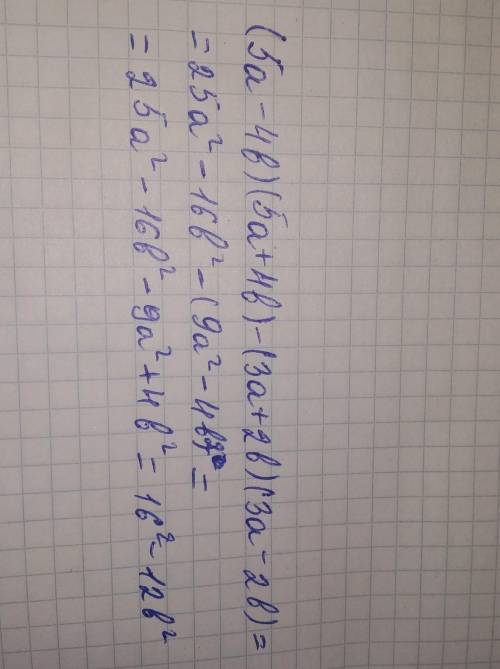 (5a-4b)(5a+4b)-(3a+2b)(3a-2b)=
=25a²-16b²-(9a²-4b²=
=25a²-16b²-9a²+4b²=16²-12b²